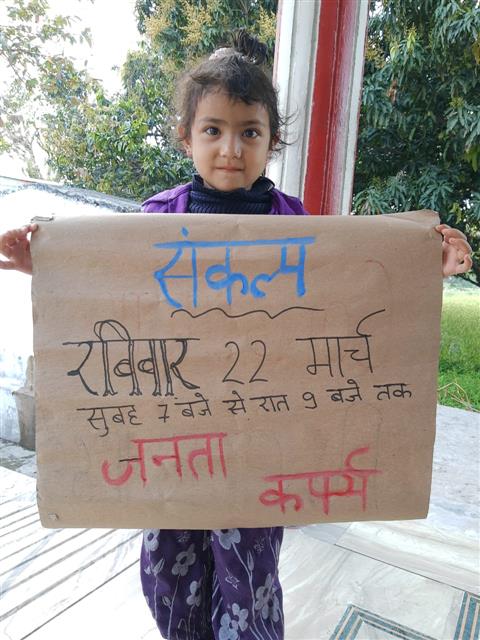 संकल्प
रविवार 22 मार्च
सुबह 7 बजे से रात 9 बजे तक
जनता
कर्फ्य